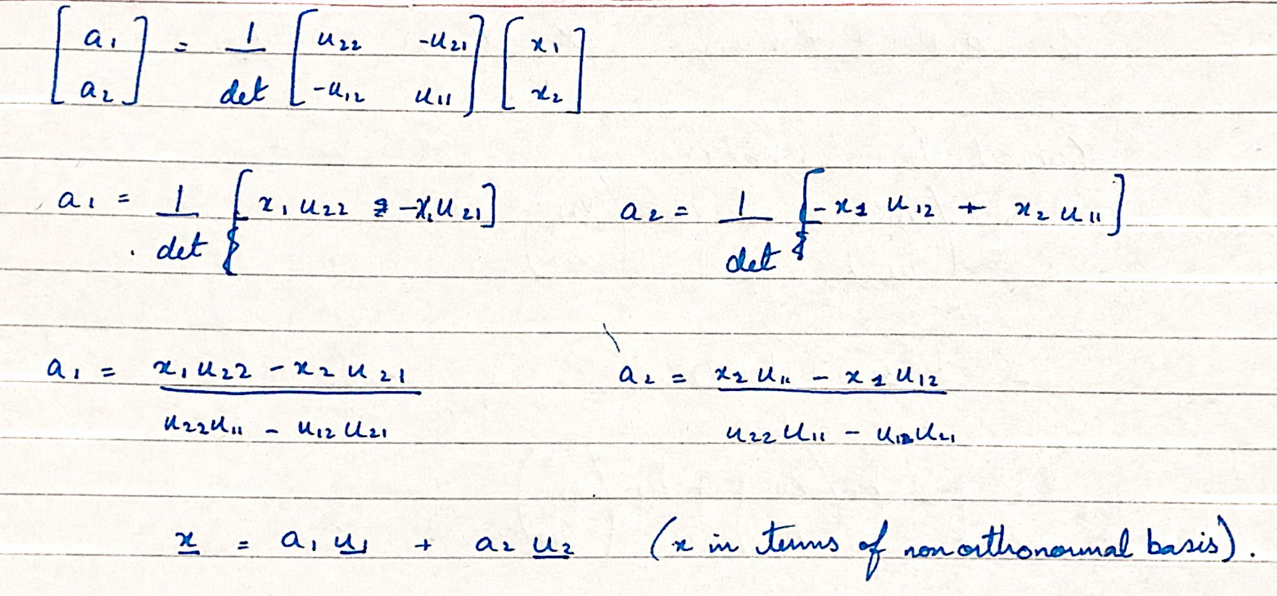 [a₁ a₂] = 1/det [u₂₂ -u₂₁ -u₁₂ u₁₁] [x₁ x₂]
a₁ = 1/det [x₁u₂₂ -x₁u₂₁] a₂ = 1/det [-x₁ u₁₂ + x₂ u₁₁]
a₁ = x₁u₂₂ - x₂u₂₁ / u₂₂u₁₁ - u₁₂u₂₁ a₂ = x₂u₁₁ - x₁u₁₂ / u₂₂u₁₁ - u₁₂u₂₁
x = a₁ u₁ + a₂ u₂ (x in terms of nonorthonormal basis).